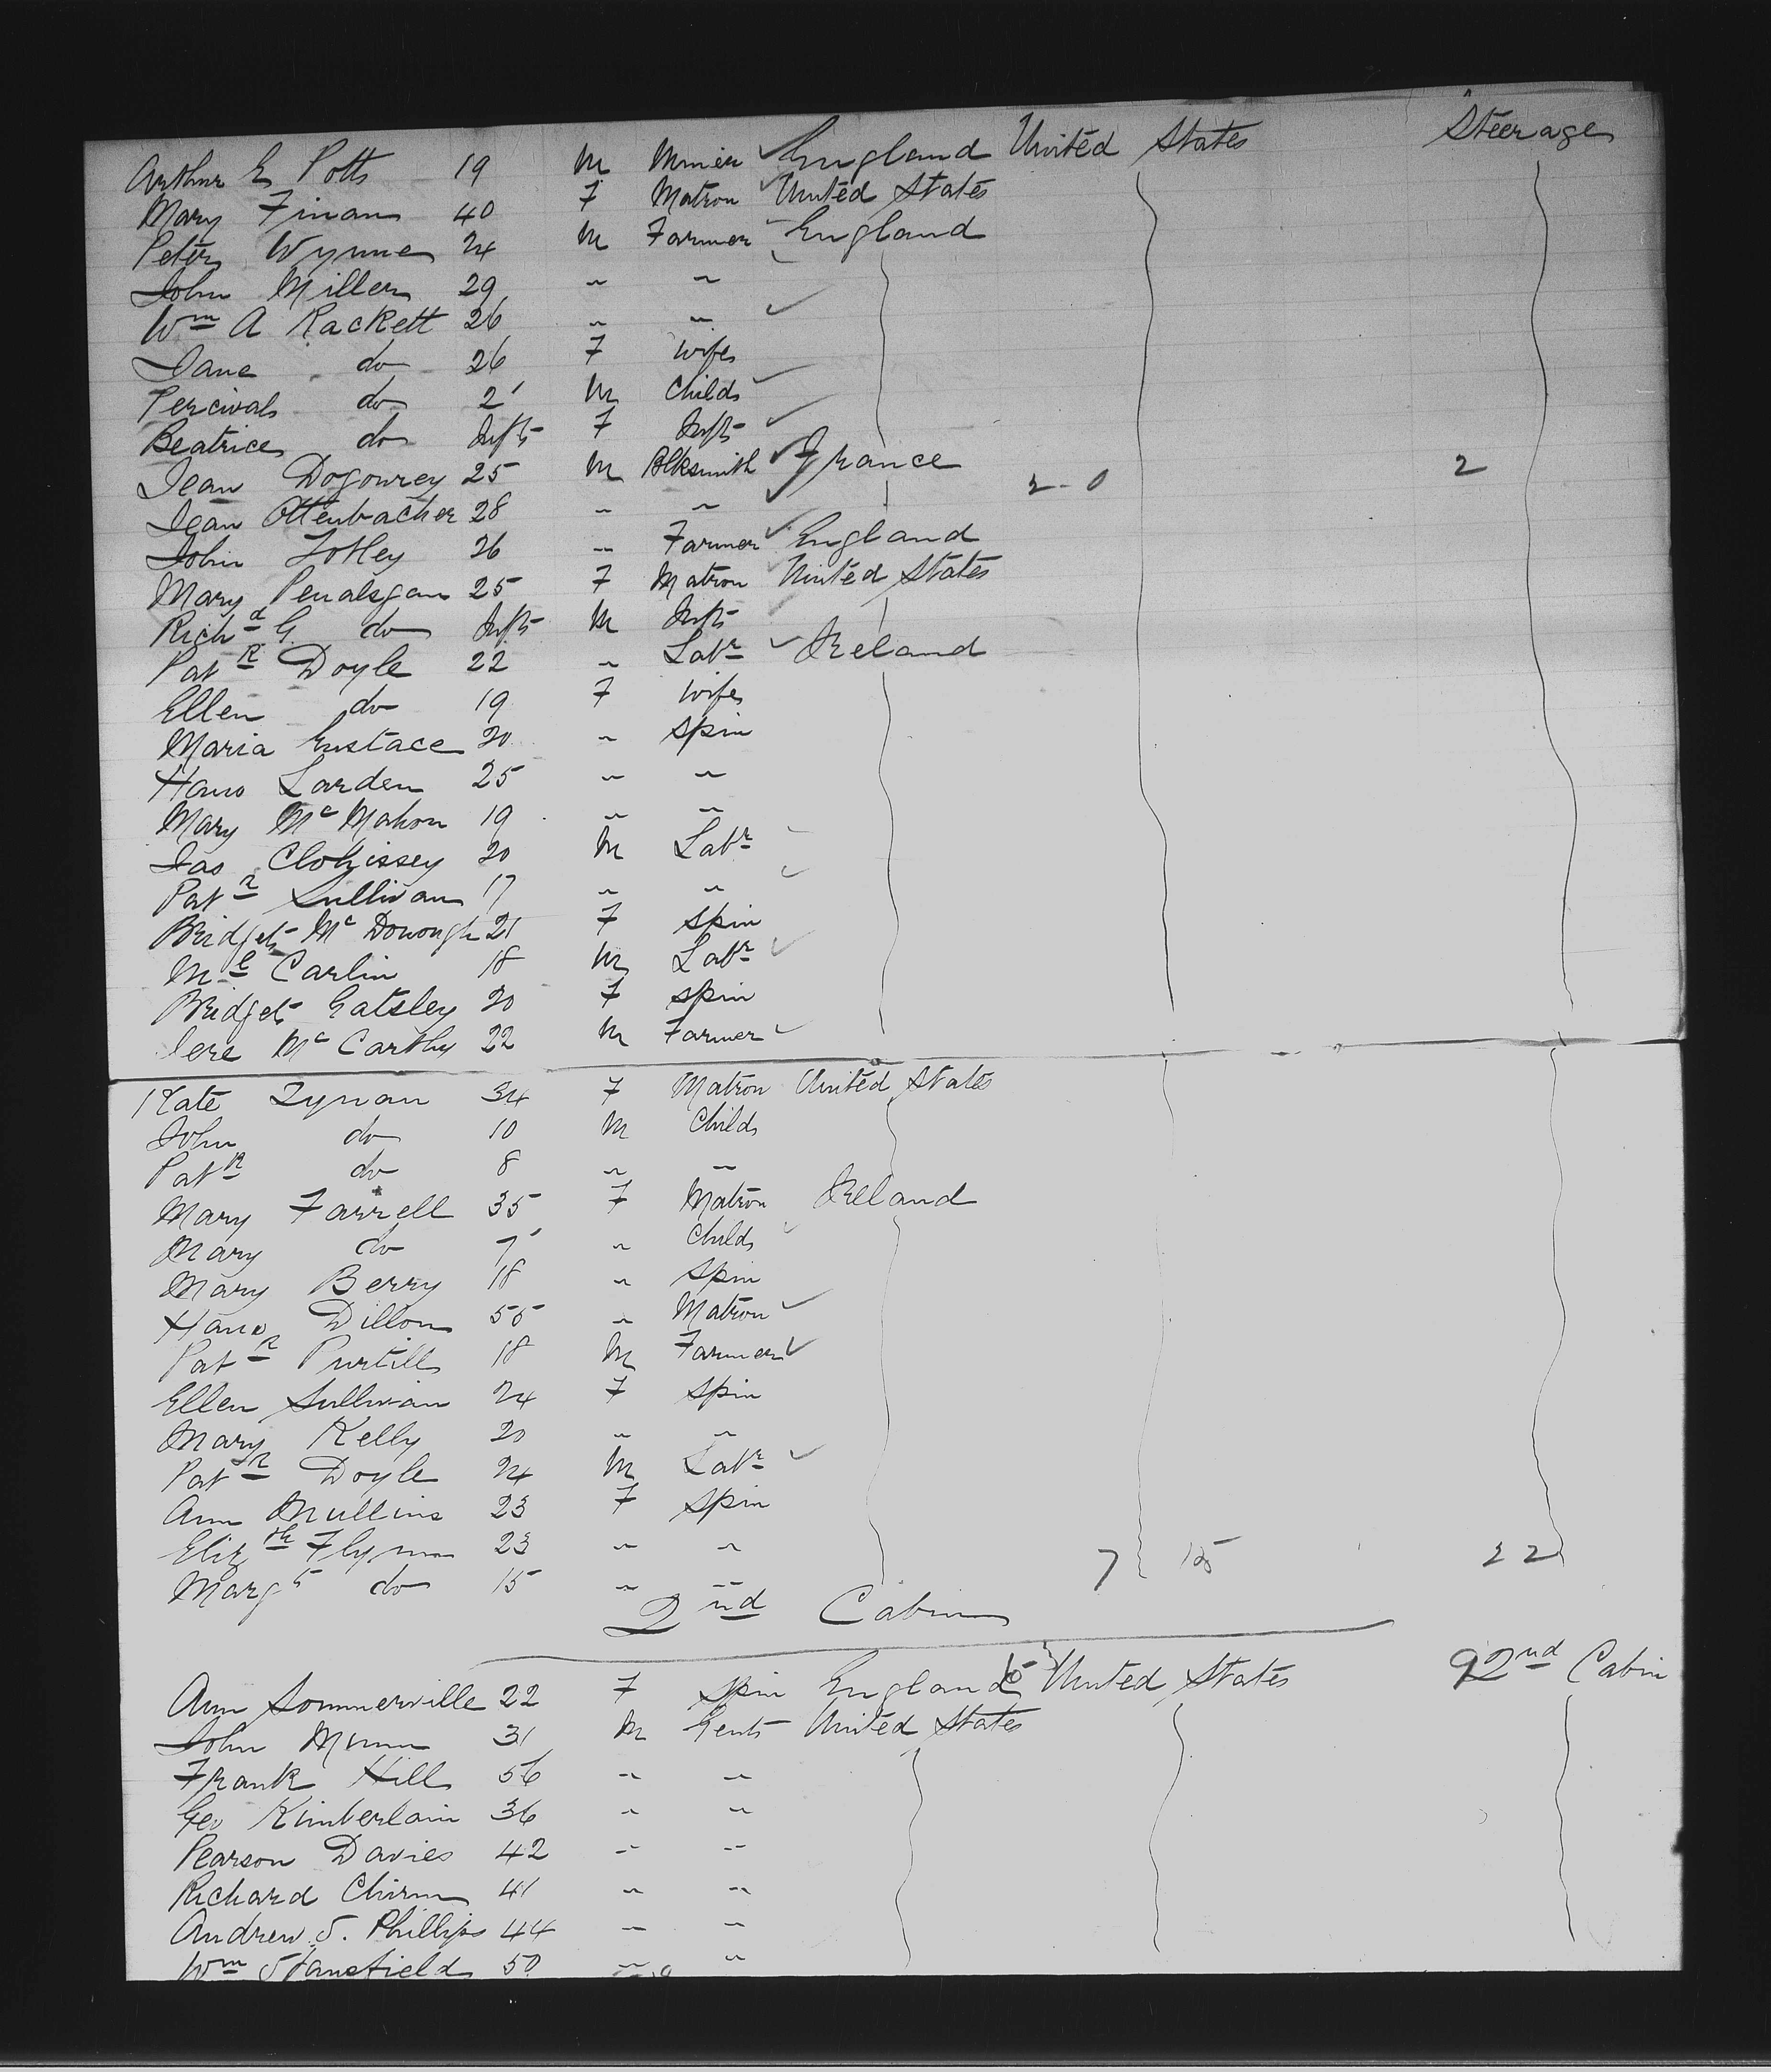 Arthur E Potts 19 M Miner England United States Steerage
Mary Finan 40 F Matron United States
Peter Wynne 24 M Farmer England
John Miller 29 " "
Wm A Rackett 26 " "
Jane do 26 F Wife
Percival do 2 M Child
Beatrice do Inft F Inft
Jean Dogourey 25 M Blksmith France 2-0 2
Jean Ottenbacher 28 " "
John Totley 26 " Farmer England
Mary Penalsgan 25 F Matron United States
Richd G. do Inft M Inft
Patk Doyle 22 " Labr Ireland
Ellen do 19 F Wife
Maria Eustace 20 " Spin
Hans Larden 25 " "
Mary McMahon 19 " "
Jas 20 M Labr
Patk Sullivan 17 " "
Bridget McDonough 21 F Spin
Ml Carlin 18 M Labr
Bridget Gatsley 20 F Spin
Jere McCarthy 22 M Farmer
Kate Tynan 34 F Matron United States
John do 10 M Child
Patk do 8 " "
Mary Farrell 35 F Matron Ireland
Mary do 7 " Child
Mary Berry 18 " Spin
Hano Dillon 55 " Matron
Patk Purtill 18 M Farmer
Ellen Sullivan 24 F Spin
Mary Kelly 20 " "
Patk Doyle 24 M Labr
Ann Mullins 23 F Spin
Elizth Flynn 23 " " 7 15 22
Margt do 15 " "
2nd Cabin
Ann Sommerville 22 F Spin England United States 2nd Cabin
John Munn 31 M Gent United States
Frank Hill 56 " "
Geo Kimberlain 36 " "
Pearson Davies 42 " "
Richard Chirm 41 " "
Andrew S. Phillips 44 " "
Wm Stansfield 50 " "